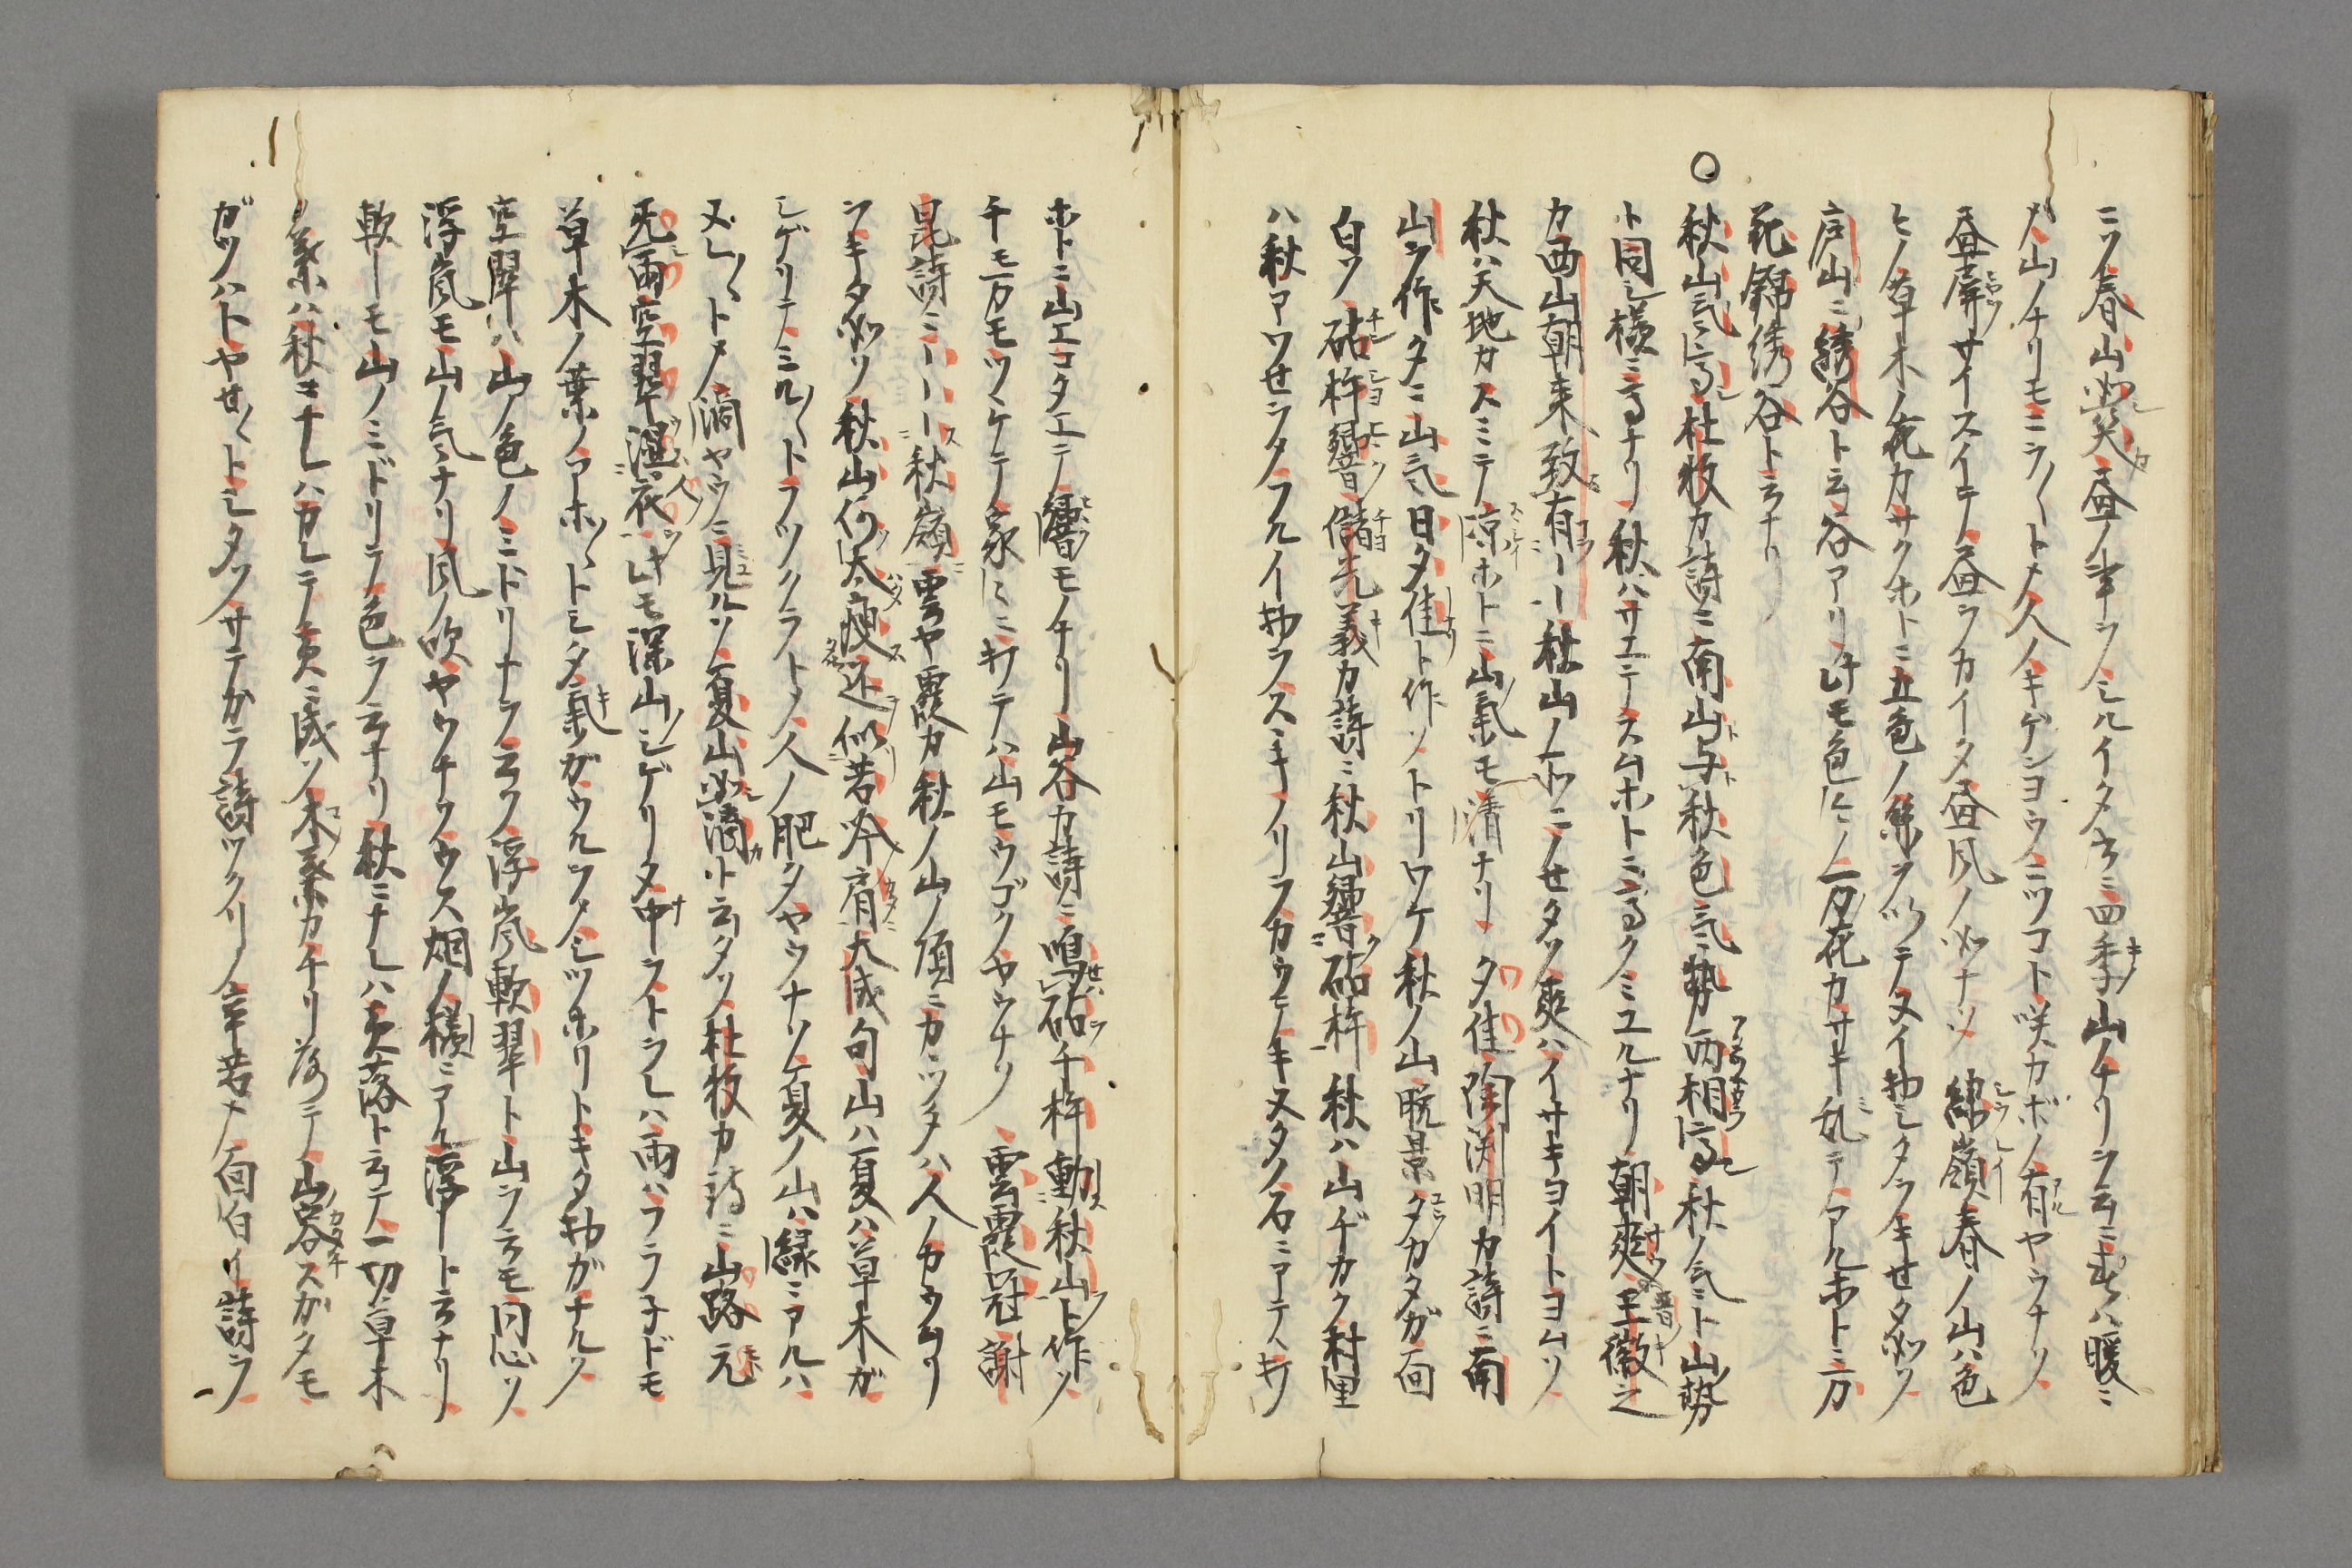 ニソ春山如笑畫ノ半ヲシルイタホニ四季山ノナリヲ云ニ春ハ暖ニ
メ山ノナリモニラ〱トメ人ノキゲンヨウニツコト咲カボノ有ヤウナソ
畫屏サイスイテ畫ヲカイタ畫風ノ如ナソ 綉嶺春ノ山ハ色
ヒノ草木ノ花カサクホトニ五色ノ絲ヲ以テヌイ物シタヲキせタ如ソ
戸山ニ綉谷ト云谷アリ此モ色々ノ万花カサキ乱テアルホトニ万
花錦綉谷ト云ナリ
○秋山氣高杜牧カ詩ニ南山与秋色氣勢両相高秋ノ氣ト山ノ勢
ト同シ様ニ高ナリ秋ハサエテスムホトニ高クミユルナリ朝爽王徽之
カ西山朝来致有ーー秋山ノホニノせタソ爽ハイサキヨイトヨムソ
秋ハ天地カスミテ涼ホトニ山ノ氣モ清ナリ 夕佳陶渕明カ詩ニ南
山ヲ作タニ山氣日夕佳ト作ソトリワケ秋ノ山晩景夕カタガ面
白ソ 砧杵響儲光羲カ詩ニ秋山響砧杵秋ハ山ヂカク村里
ハ秋アワせヲタフルイ物ヲスキノリヲカウモノキヌタノ石ニアテヽキソ
ホトニ山エコタエテ響モナリ山谷カ詩ニ鳴砧千杵動秋山ト作ソ
千モ万モツヽケテ家々ニキテハ山モウゴクヤウナソ 雲霞冠謝
昆詩ニーーー秋嶺雲ヤ霞カ秋ノ山ノ頂ニカヽツタハ人ノカウムリ
ヲキタ如ソ秋山何太瘦还似若吟肩大成句山ハ夏ハ草木ガ
シゲリテミル〱トフツクラトメ人ノ肥タヤウナソ夏ノ山ハ緑ニアルハ
又し〱トメ滴ヤウニ見ルソ夏山如滴ト云タソ杜牧カ詩ニ山路元
无雨空翠湿人衣此モ深山ノシゲリタ中ヲトヲレハ雨ハフラ子ドモ
草木ノ葉ノアホ〱トシタ氣ガウルヲメシツホリトキタ物ガナルソ
空翠ハ山ノ色ノミドリナヲ云ソ浮嵐軟翠ト山ヲ云モ同心ソ
浮嵐モ山ノ氣ナリ風ノ吹ヤウナソウス烟ノ様ニアル浮ート云ナリ
軟ーモ山ノミドリノ色ヲ云ナリ秋ニナレハ黄落ト云テ一切草木
ノ葉ハ秋キナレハカレテ黄ニ成ソ木ノ葉カチリ落テ山ノ容スガタモ
ガツハトヤせ〱トシタソサテカラ詩ツクリノ辛苦メ面白イ詩ヲ